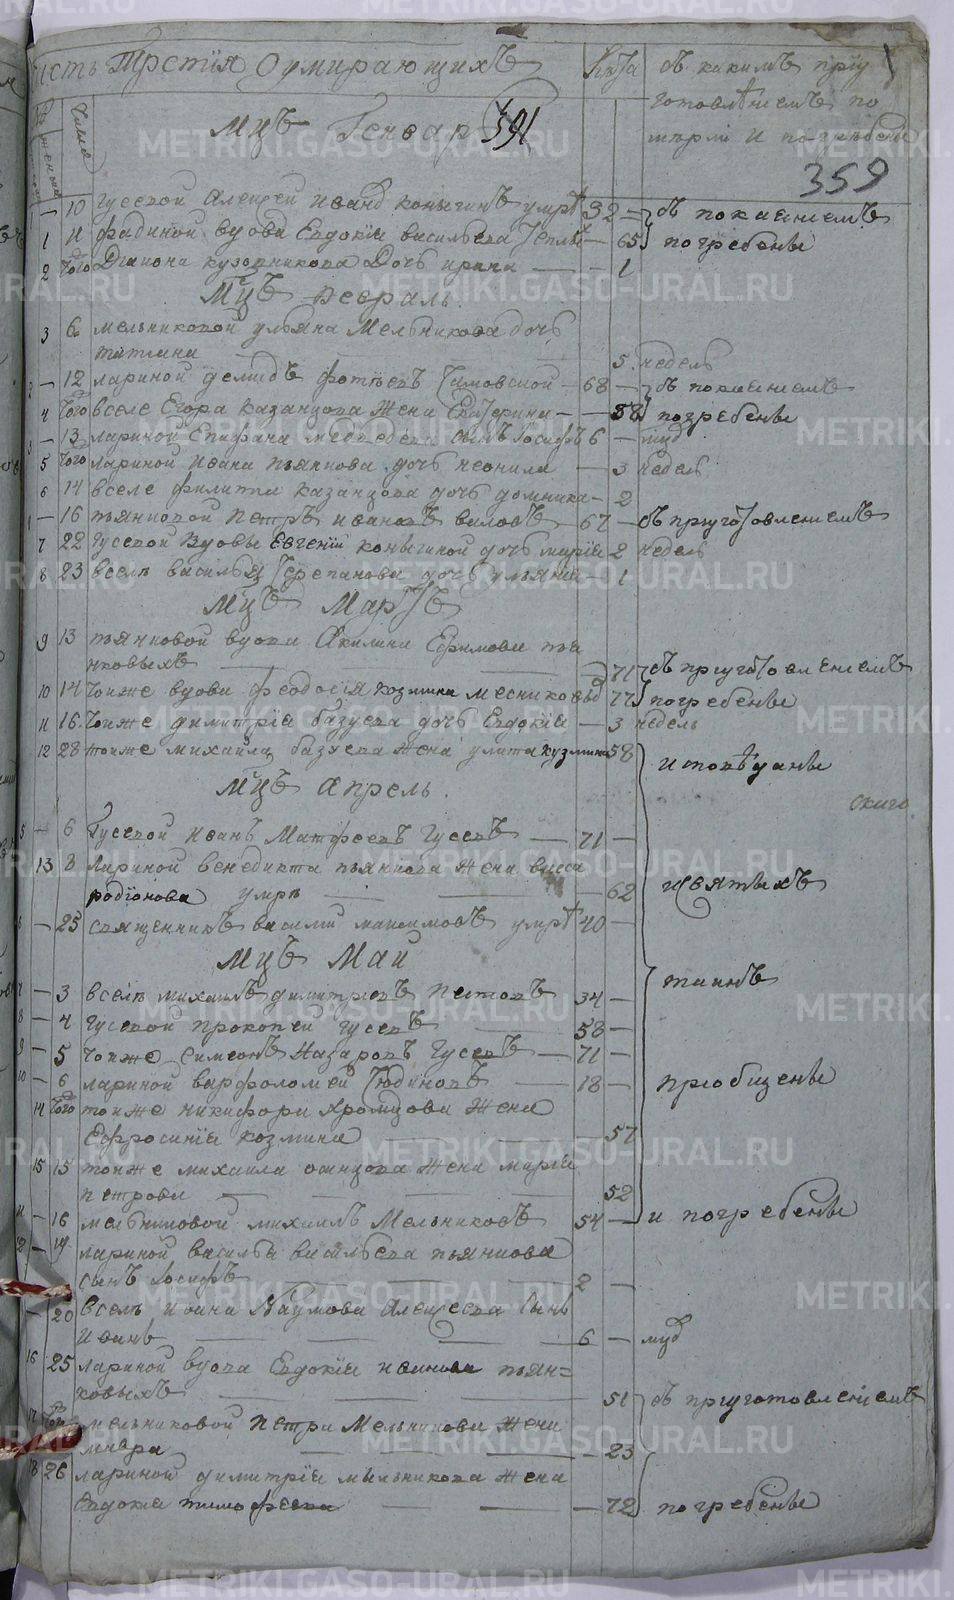 Часть Третия Оумирающихъ
Лѣта
съ какимъ приу
готовлѣниемъ по
мерли и погребены
Числа
мцъ Генвар 391
359
1 10 Гусевой Алексей иванъ конычинъ умрѣ 32 – съ покаениемъ
1 11 фадиной вдова Евдокіе васильева – 65 погребены
2 того Диапона кузовникова дочь ирина – 1
мцъ Февраль
3 6 мельниковой ульяна мельникова дочь
татиана – 5 недель
12 лариной демидъ фотѣевъ – 68 – съ покаениемъ
4 того вселе Егора казанцова жена Екатерина – 58 погребены
13 лариной Епифана медведева сынъ Іосифъ 6 – муд
5 того лариной ивана пьянкова дочь неонила – 3 недель
6 14 вселе филипа казанцова дочь домника – 2
16 пьянковой петръ ивановъ виловъ – 67 – съ приуготовлениемъ
7 22 Гусевой вдовы Евгеній конычиной дочь маріе 2 недель
8 23 вселѣ василья черепанова дочь ульяна – 1
мцъ Мартъ
9 13 пьянковой вдова Акилина Ефимова пья
нковыхъ – 71 съ приуготовлениемъ
10 14 тоиже вдова феодосія козмина месникова 77 погребены
11 16 тоиже димитріе базуева дочь Евдокіе – 3 недель
12 28 тоиже михаила базуева жена улита кузмина 58
исповѣданы
мцъ Апрель.
скиго
5 – 6 Гусевой иванъ Матфеевъ Гусевъ – 71 –
13 8 лариной венедикта пьянкова жена васса
родіонова умре – 62
исвятыхъ
6 – 25 священникъ василий максимовъ умрѣ 40 –
мцъ Май
таинъ
7 – 3 вселѣ михаилъ димитріевъ пестовъ 34 –
8 – 4 Гусевой прокопей гусевъ 58 –
9 – 5 тоиже Симеонъ Назаровъ Гусевъ – 71 –
10 – 6 лариной варфоломей – 18 –
приобщены
14 того тоиже никифора хромцова жена
Ефросиніе козмина – 57
15 15 тоиже михаила оманцова жена маріе
петрова – 52
11 – 16 мельниковой михаилъ Мельниковъ 54 –
и погребены
12 – 19 лариной василья васильева пьянкова
сынъ Іосифъ – 2 –
– 20 вселъ ивана Наумова Алексеева сынъ
иванъ – 6 – муд
16 25 лариной вдова Евдокіе иванова пьян=
ковыхъ – 51 съ приуготовлениемъ
17 того мельниковой петра Мельникова жена
мавра – 23
18 26 лариной димитріе мыльникова жена
Евдокіе тимофеева – 72 погребены